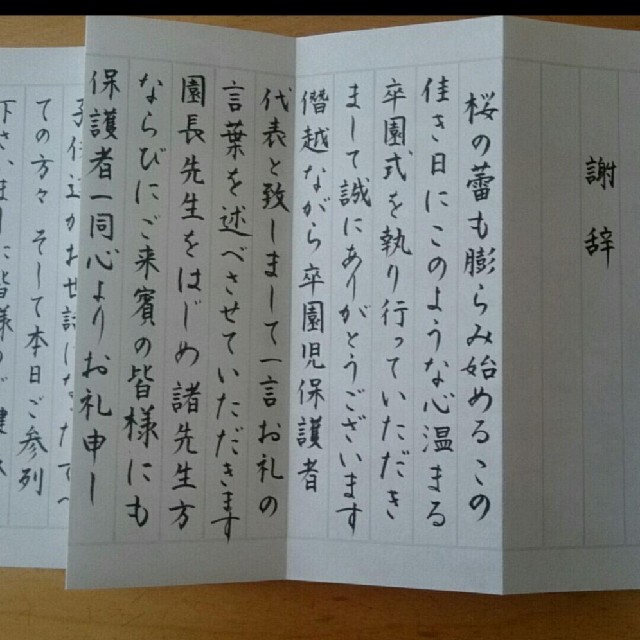 謝辞
桜の蕾も膨らみ始めるこの
佳き日にこのような心温まる
卒園式を執り行っていただき
まして誠にありがとうございます
僭越ながら卒園児保護者
代表と致しまして一言お礼の
言葉を述べさせていただきます
園長先生をはじめ諸先生方
ならびにご来賓の皆様にも
保護者一同心よりお礼申し
ての方々そして本日ご参列